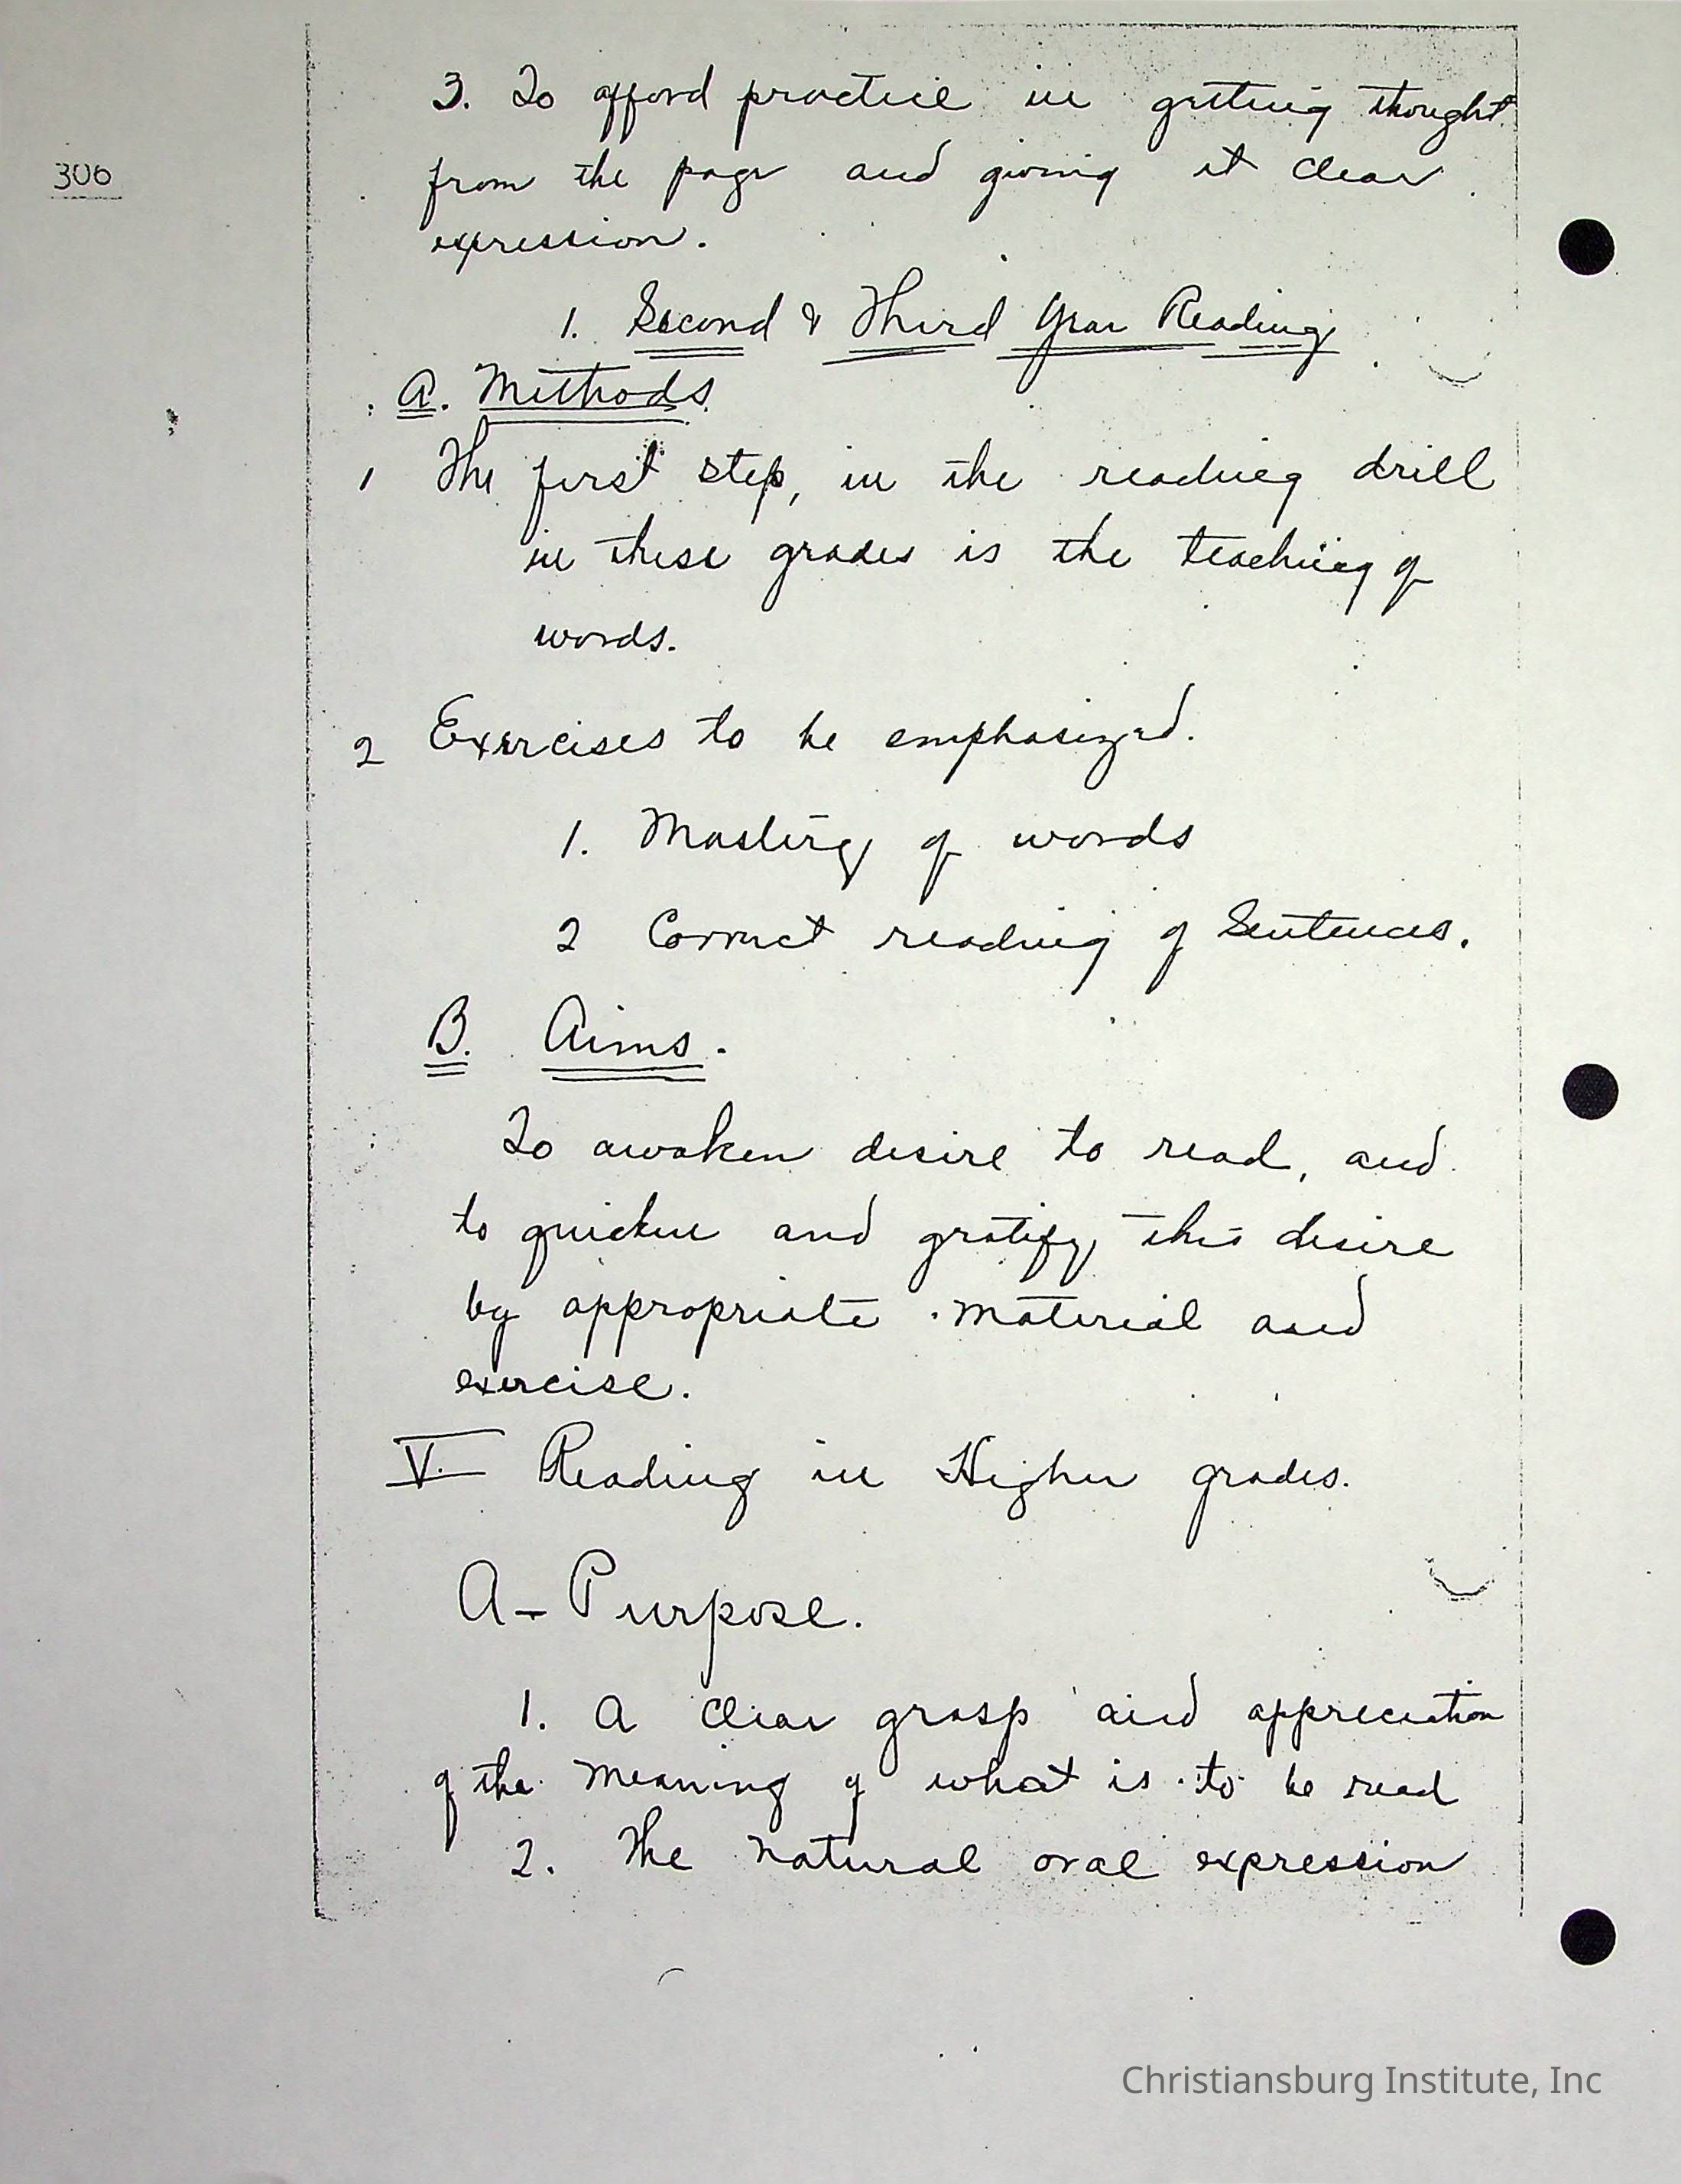 306
3. To afford practice in getting thought
from the page and giving it clear
expression.
1. Second & Third Year Reading
A. Methods.
1 The first step, in the reading drill
in these grades is the teaching of
words.
2 Exercises to be emphasized.
1. Mastery of words
2 Correct reading of Sentences.
B. Aims.
To awaken desire to read, and
to quicken and gratify this desire
by appropriate material and
exercise.
V. Reading in Higher grades.
A- Purpose.
1. A clear grasp and appreciation
of the meaning of what is to be read
2. The natural oral expression
Christiansburg Institute, Inc